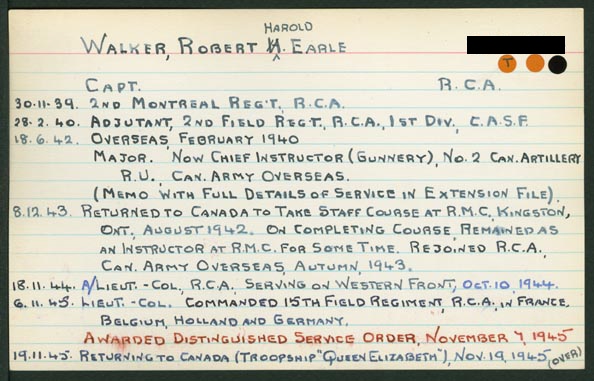 HAROLD
WALKER, ROBERT H. EARLE
T
CAPT. R.C.A.
30.11.39. 2ND MONTREAL REG'T, R.C.A.
28.2.40. ADJUTANT, 2ND FIELD REGT., R.C.A., 1ST DIV., C.A.S.F.
18.6.42. OVERSEAS, FEBRUARY 1940
MAJOR. NOW CHIEF INSTRUCTOR (GUNNERY), NO. 2 CAN. ARTILLERY
R.U., CAN. ARMY OVERSEAS.
(MEMO WITH FULL DETAILS OF SERVICE IN EXTENSION FILE).
8.12.43. RETURNED TO CANADA TO TAKE STAFF COURSE AT R.M.C., KINGSTON,
ONT., AUGUST 1942. ON COMPLETING COURSE, REMAINED AS
AN INSTRUCTOR AT R.M.C. FOR SOME TIME. REJOINED R.C.A.,
CAN. ARMY OVERSEAS, AUTUMN, 1943.
18.11.44. A/LIEUT.-COL., R.C.A., SERVING ON WESTERN FRONT, OCT. 10, 1944.
6.11.45. LIEUT.-COL. COMMANDED 15TH FIELD REGIMENT, R.C.A., IN FRANCE,
BELGIUM, HOLLAND AND GERMANY.
AWARDED DISTINGUISHED SERVICE ORDER, NOVEMBER 7, 1945
19.11.45. RETURNING TO CANADA (TROOPSHIP "QUEEN ELIZABETH"), NOV. 19, 1945
(OVER)